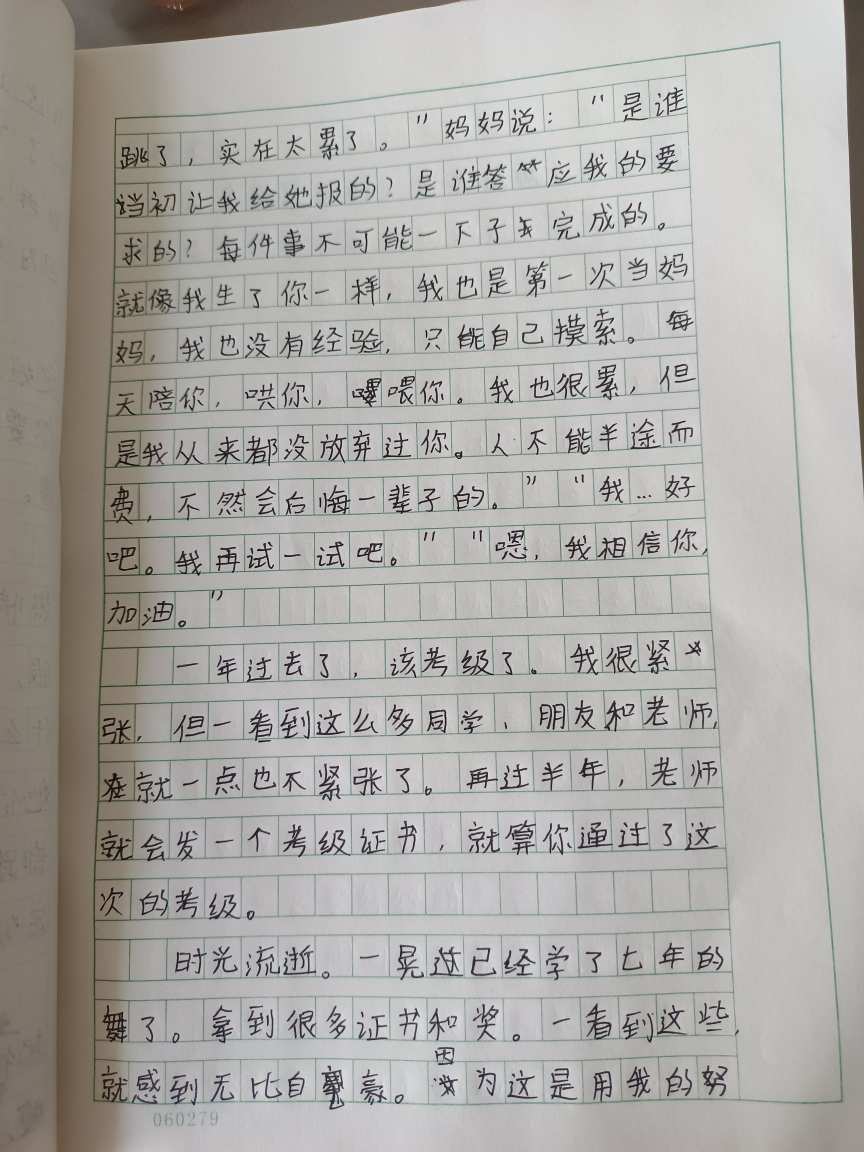 跳了，实在太累了。”妈妈说：“是谁
当初让我给她报的？是谁答应我的要
求的？每件事不可能一下子完成的。
就像我生了你一样，我也是第一次当妈
妈，我也没有经验，只能自己摸索。每
天陪你，哄你，喂你。我也很累，但
是我从来都没放弃过你。人不能半途而
费，不然会后悔一辈子的。”“我…好
吧。我再试一试吧。”“嗯，我相信你，
加油。”
一年过去了，该考级了。我很紧
张，但一看到这么多同学、朋友和老师，
就一点也不紧张了。再过半年，老师
就会发一个考级证书，就算你通过了这
次的考级。
时光流逝。一晃已经学了七年的
舞了。拿到很多证书和奖。一看到这些，
就感到无比自豪。因为这是用我的努
060279